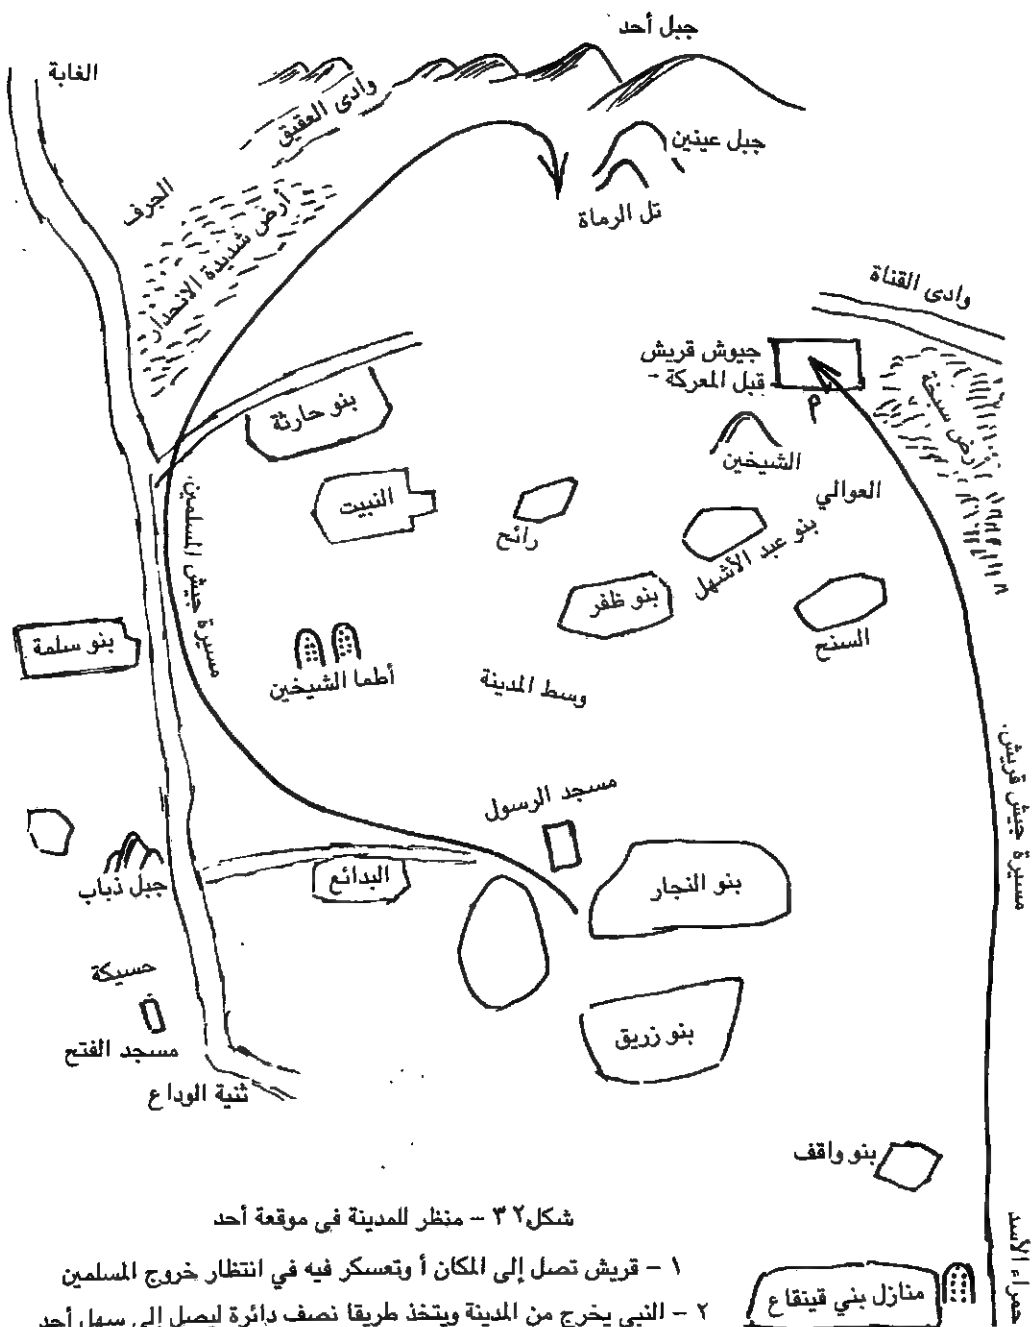 جبل أحد
الغابة
وادى العقيق
جبل عينين
الجرف
أرض شديدة الانحدار
تل الرماة
وادى القناة
جيوش قريش
قبل المعركة -
م
أرض سبخة
بنو حارثة
الشيخين
العوالي
النبيت
رائح
بنو عبد الأشهل
مسيرة جيش المسلمين.
بنو ظفر
السنح
بنو سلمة
أطما الشيخين
وسط المدينة
مسيرة جيش قريش.
مسجد الرسول
جبل ذباب
البدائع
بنو النجار
حسيكة
مسجد الفتح
بنو زريق
ثنية الوداع
بنو واقف
حمراء الأسد
منازل بني قينقاع
شكل ٣٢ - منظر للمدينة فى موقعة أحد
١ - قريش تصل إلى المكان أ وتعسكر فيه في انتظار خروج المسلمين
٢ - النبي يخرج من المدينة ويتخذ طريقا نصف دائرة ليصل إلى سهل أحد